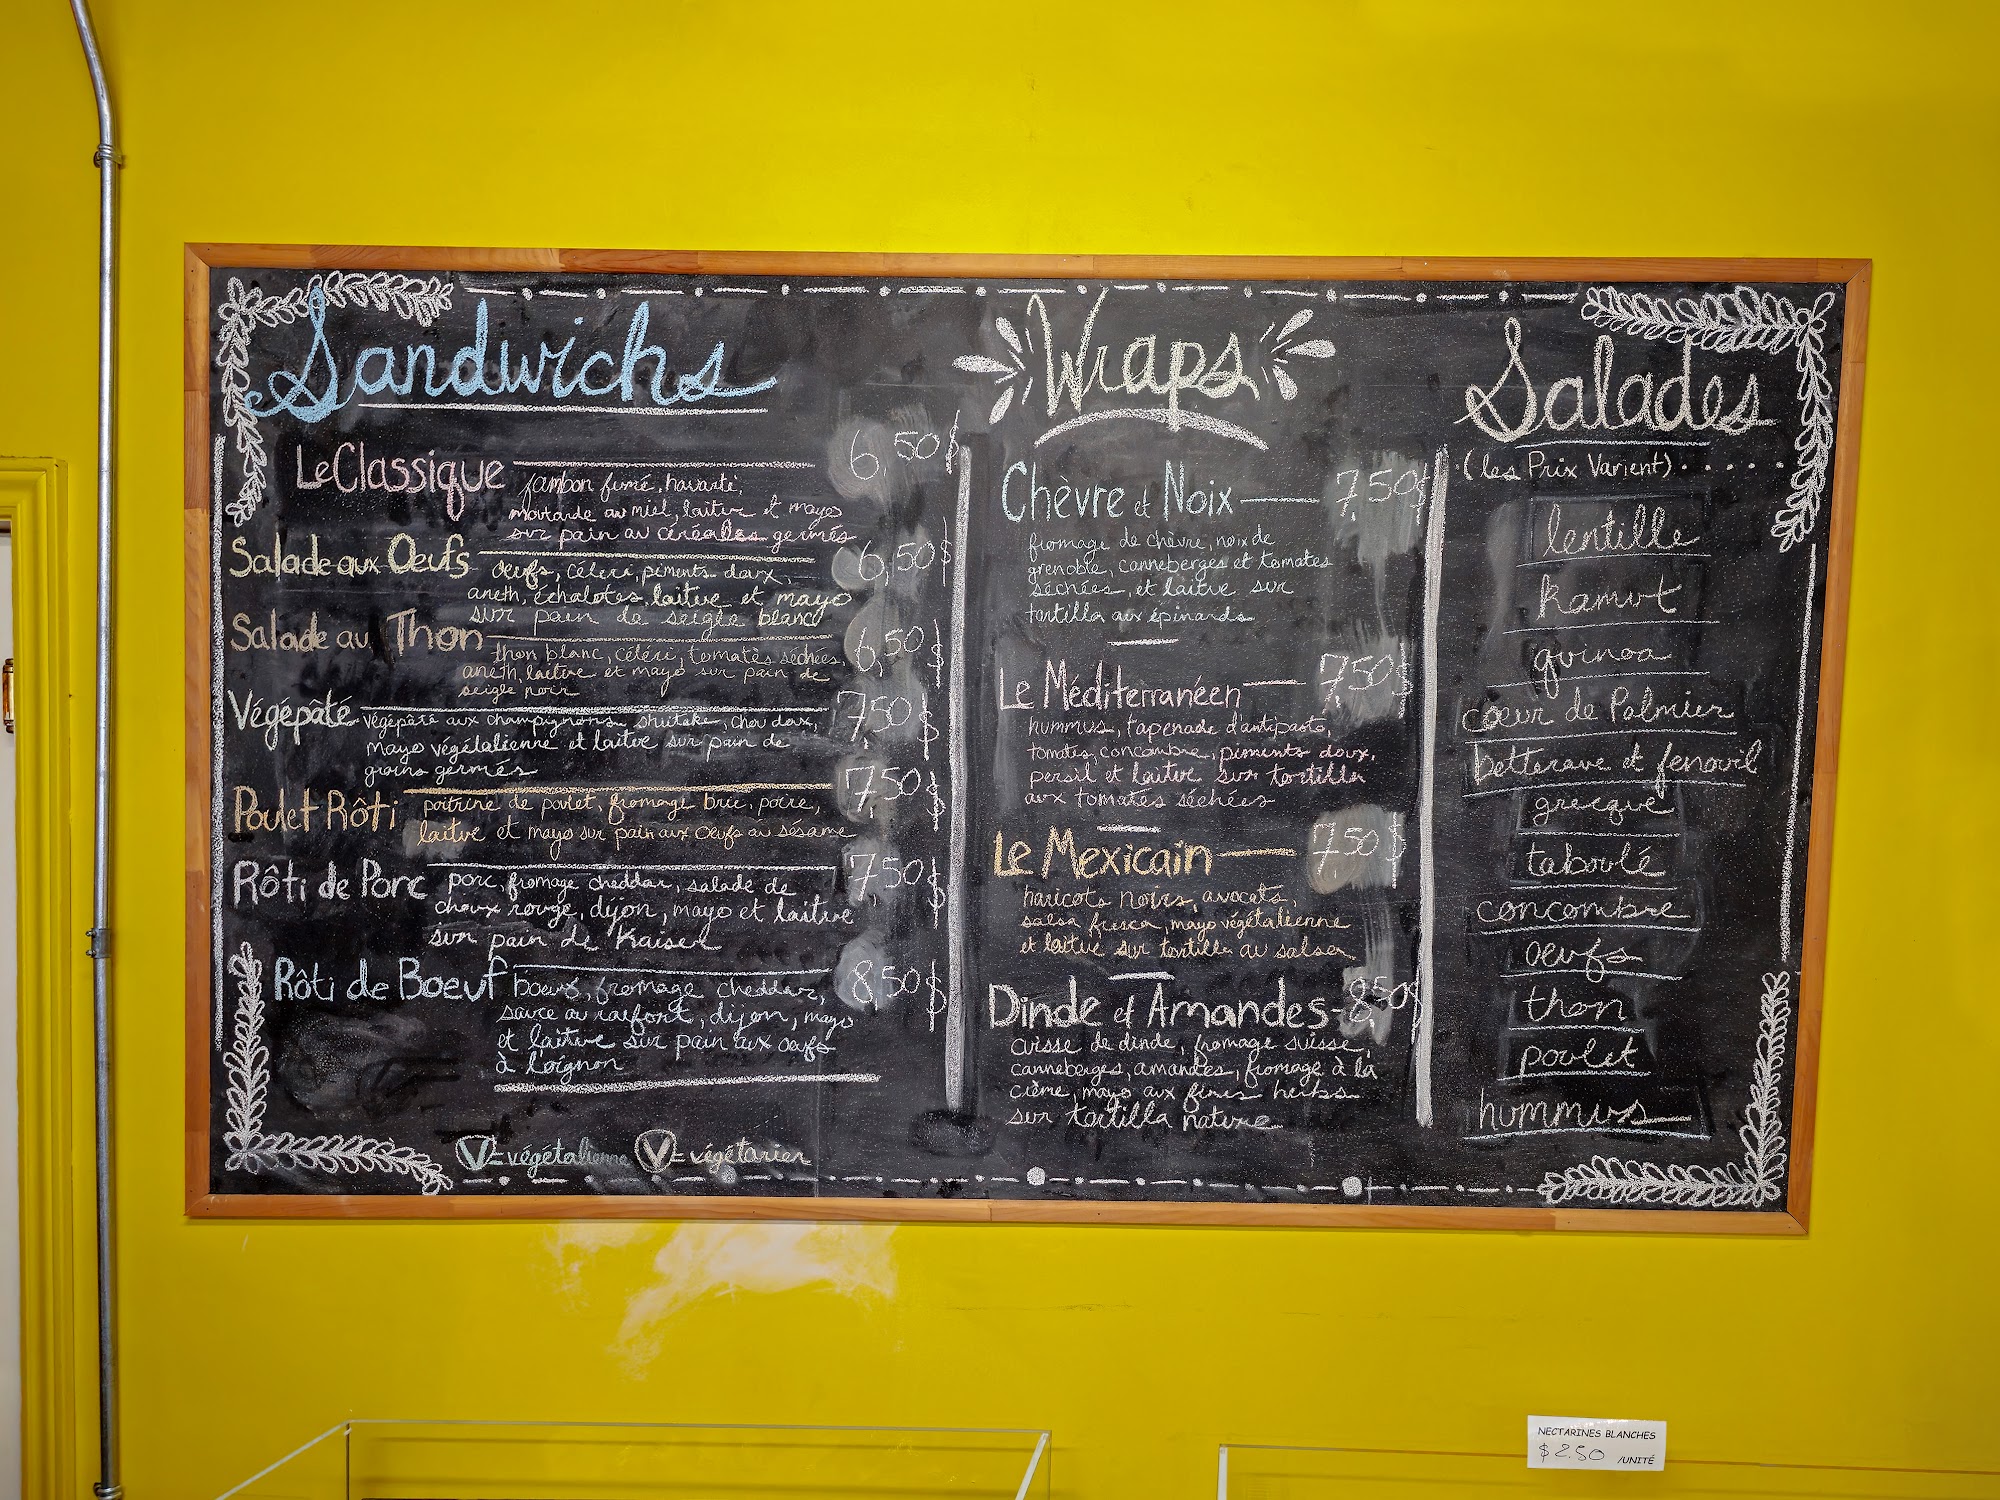 Sandwichs
Le Classique 6,50$
jambon fumé, havarti,
moutarde au miel, laitue et mayo
sur pain au céréales germés
Salade aux Oeufs 6,50$
oeufs, céleri, piments doux,
aneth, échalotes, laitue et mayo
sur pain de seigle blanc
Salade au Thon 6,50$
thon blanc, céleri, tomates séchées,
aneth, laitue et mayo sur pain de
seigle noir
Végépâté 7,50$
végépâté aux champignons shiitake, chou doux,
mayo végétalienne et laitue sur pain de
grains germés
Poulet Rôti 7,50$
poitrine de poulet, fromage brie, poire,
laitue et mayo sur pain aux oeufs au sésame
Rôti de Porc 7,50$
porc, fromage cheddar, salade de
choux rouge, dijon, mayo et laitue
sur pain de Kaiser
Rôti de Boeuf 8,50$
boeuf, fromage cheddar,
sauce au raifort, dijon, mayo
et laitue sur pain aux oeufs
à l'oignon
V=végétalienne V=végétarien
Wraps
Chèvre et Noix 7,50$
fromage de chèvre, noix de
grenoble, canneberges et tomates
séchées, et laitue sur
tortilla aux épinards
Le Méditerranéen 7,50$
hummus, tapenade d'antipasto,
tomates, concombre, piments doux,
persil et laitue sur tortilla
aux tomates séchées
Le Mexicain 7,50$
haricots noirs, avocats,
salsa fresca, mayo végétalienne
et laitue sur tortilla au salsa
Dinde et Amandes 8,50$
cuisse de dinde, fromage suisse,
canneberges, amandes, fromage à la
crème, mayo aux fines herbs
sur tortilla nature
Salades
(les Prix Varient)
lentille
kamut
quinoa
coeur de Palmier
betterave et fenouil
grecque
taboulé
concombre
oeufs
thon
poulet
hummus
NECTARINES BLANCHES
$ 2.50 /UNITÉ